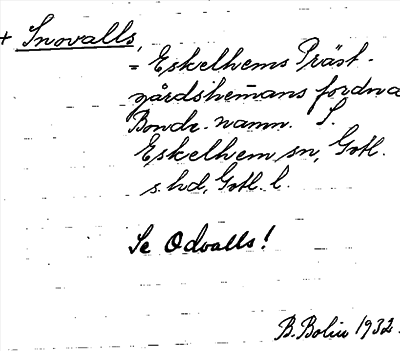 + Snovalls,
= Eskelhems Präst-
gårdshem̄ans fordna
Bonde-namn. S.
Eskelhem sn, Gotl.
s. hd, Gotl. l.
Se Odvalls!
B. Bolin 1932.